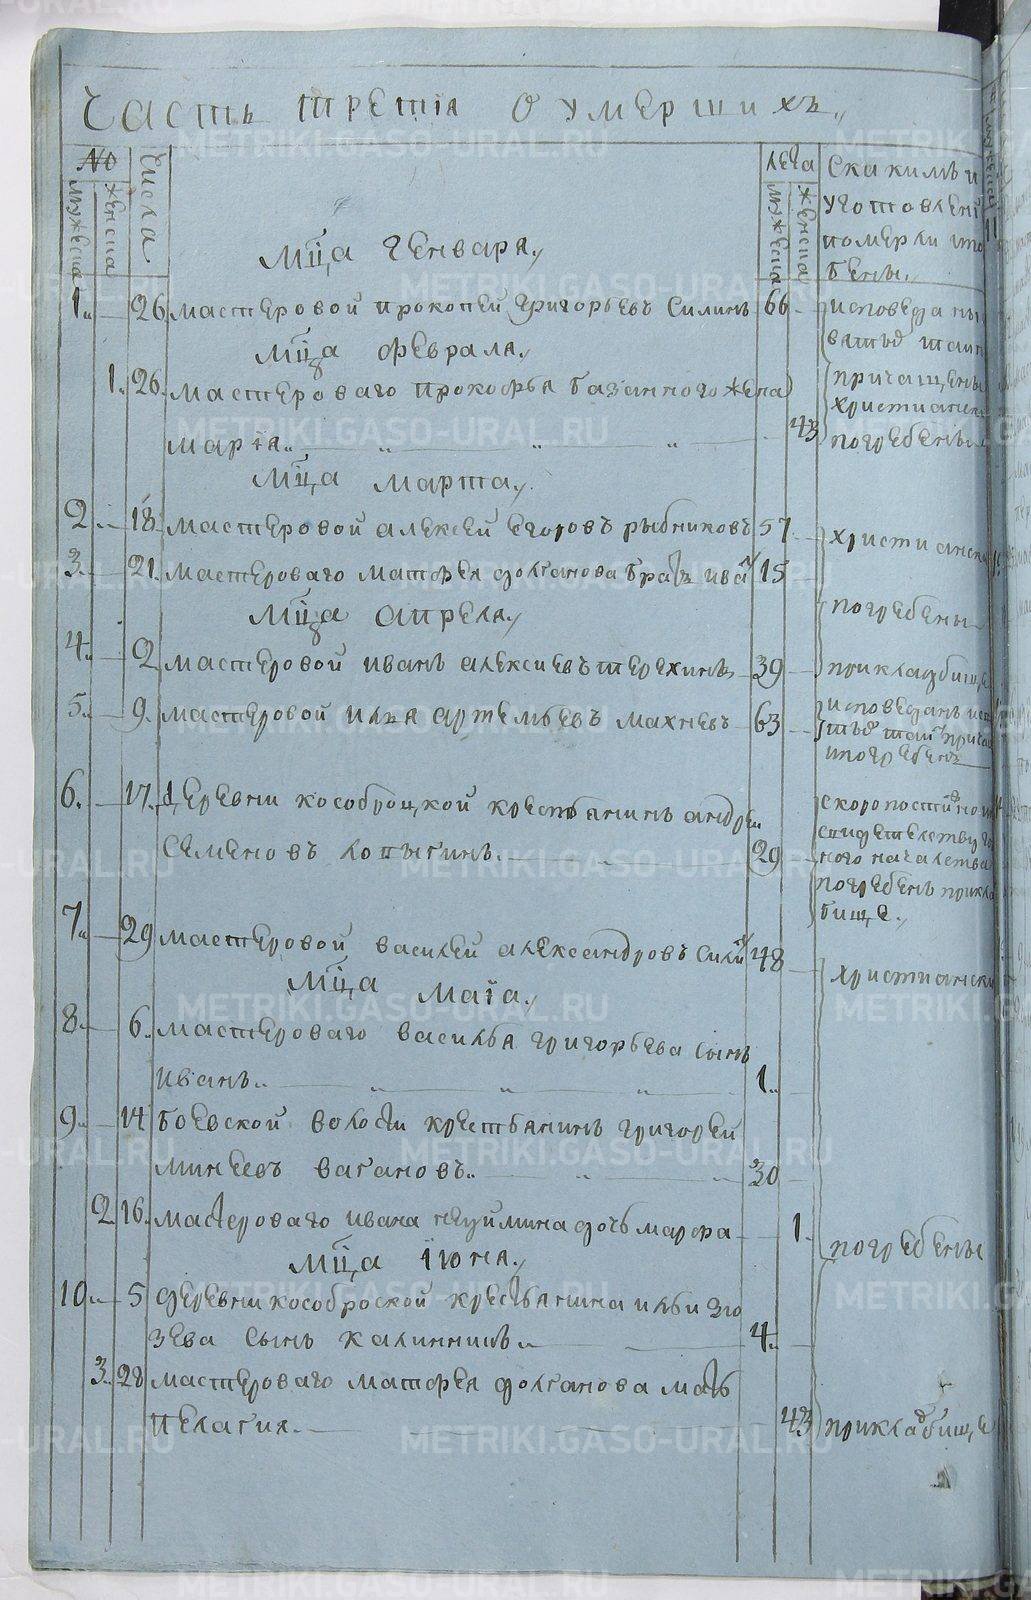 Часть третїя о умершихъ
№ Числа лета Скакимъ и
мужеска женска мужеска женска уготовленї
померли и по
Мц҃а Генваря бены
1 26 мастеровой прокопей григорьевъ Силинъ 66 исповеданы
Мц҃а февраля
1 26 мастероваго прокофья базанного жена причащены
христианск
мариа 43 погребены
Мц҃а марта
2 18 мастеровой алексей егоровъ рыбниковъ 57 христианск
3 21 мастероваго матфея долганова братъ иван 15
Мц҃а апреля погребены
4 2 мастеровой иванъ алексиевъ терехинъ 39 прикладбище
5 9 мастеровой илья артемьевъ махневъ 63 исповеданъ
ипогребенъ
6 17 деревни кособроцкой крестьянинъ андреи скоропостижно
семеновъ лопыгинъ 29 ного началства
погребенъ прикла
бище
7 29 мастеровой василей александровъ Силин 48
Мц҃а маїа христиански
8 6 мастероваго василья григорьева сынъ
иванъ 1
9 14 боевской волости крестьянинъ григорей
минеевъ вагановъ 30
2 16 мастероваго ивана неуймина дочь марфа 1 погребены
Мц҃а їюня
10 5 деревни кособроской крестьянина ильи зю
зева сынъ калинникъ 4
3 28 мастероваго матфея долганова мать
пелагия 43 прикладбище
METRIKI.GASO-URAL.RU